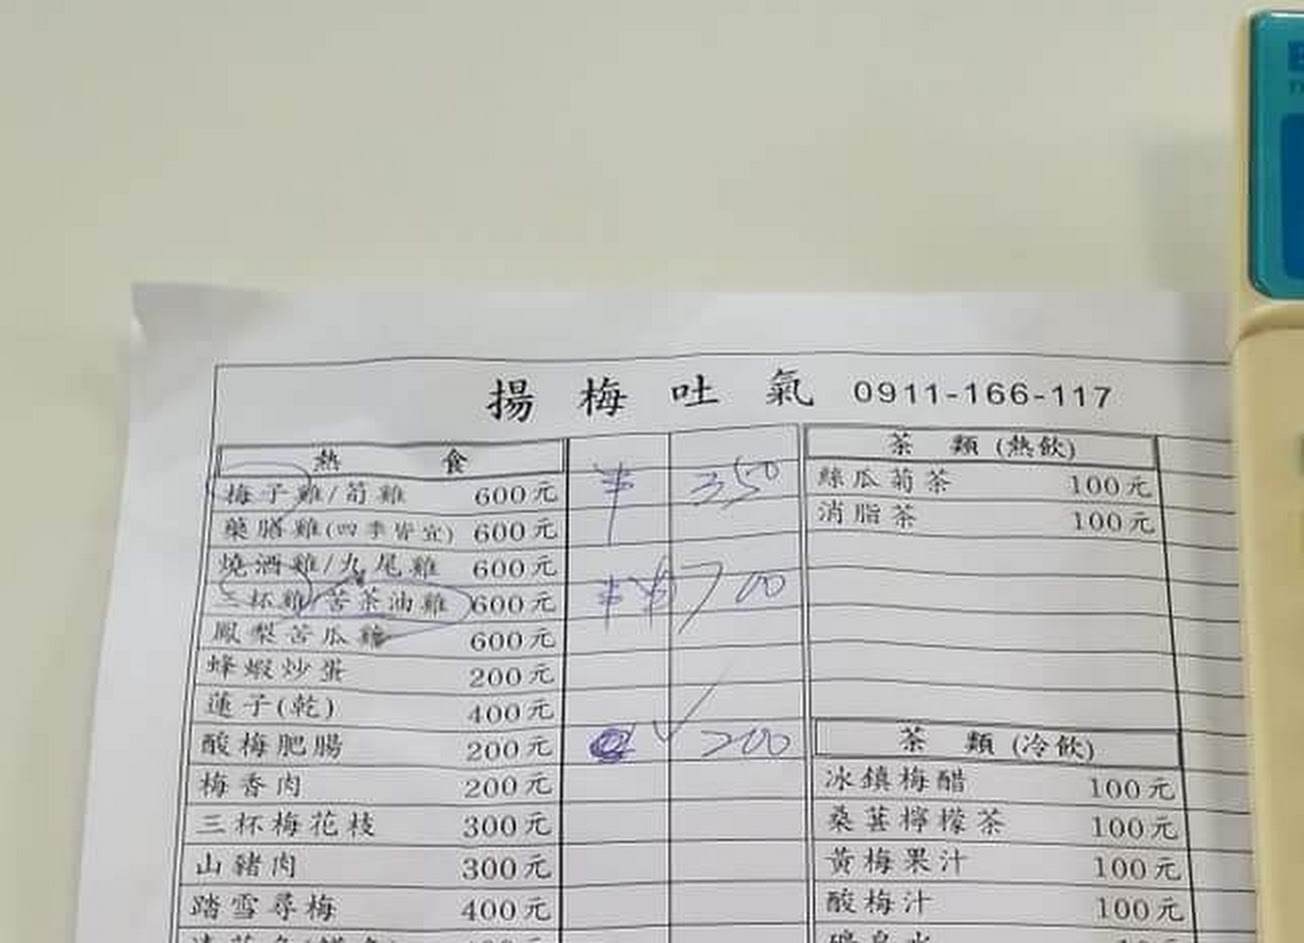 揚梅吐氣 0911-166-117
熱食
梅子雞/筍雞 600元 半 350
藥膳雞(四季皆宜) 600元
燒酒雞/九尾雞 600元
三杯雞/苦茶油雞 600元 半 半 700
鳳梨苦瓜雞 600元
蜂蝦炒蛋 200元
蓮子(乾) 400元
酸梅肥腸 200元 200
梅香肉 200元
三杯梅花枝 300元
山豬肉 300元
踏雪尋梅 400元
茶類(熱飲)
絲瓜菊茶 100元
消脂茶 100元
茶類(冷飲)
冰鎮梅醋 100元
桑葚檸檬茶 100元
黃梅果汁 100元
酸梅汁 100元